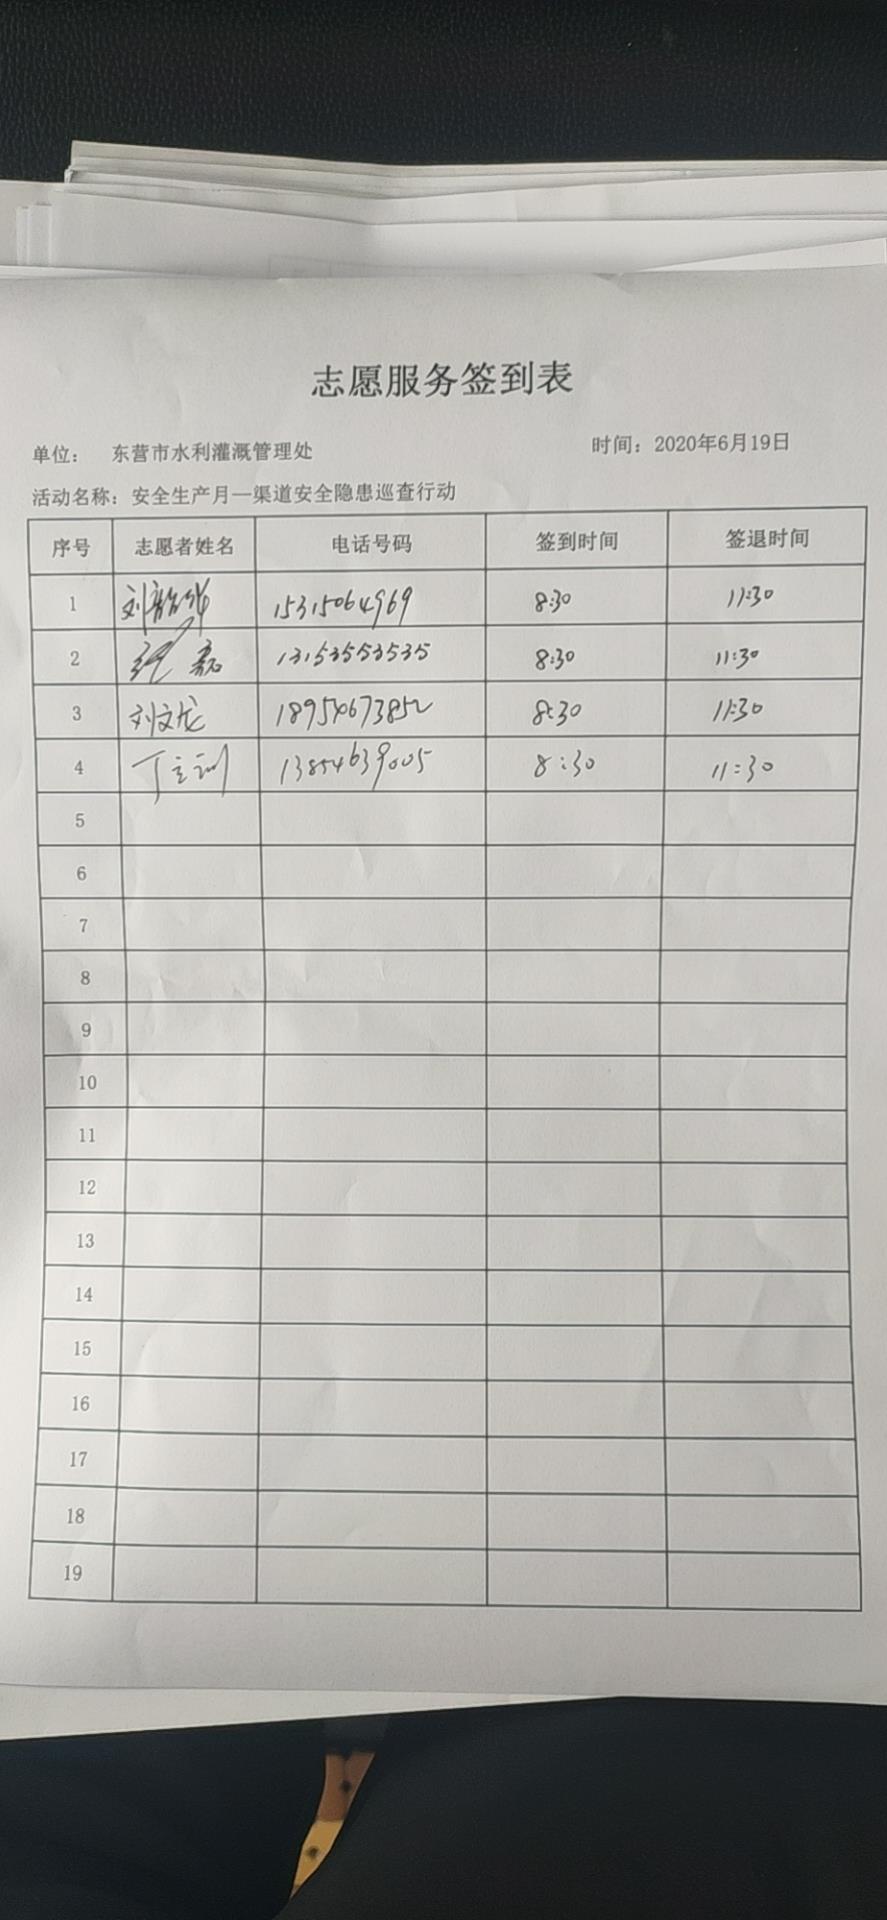 志愿服务签到表
单位： 东营市水利灌溉管理处 时间：2020年6月19日
活动名称：安全生产月—渠道安全隐患巡查行动
序号 志愿者姓名 电话号码 签到时间 签退时间
1 刘 15315064969 8:30 11:30
2 磊 13153553535 8:30 11:30
3 刘文龙 18954673852 8:30 11:30
4 丁立训 13854639005 8:30 11:30
5
6
7
8
9
10
11
12
13
14
15
16
17
18
19